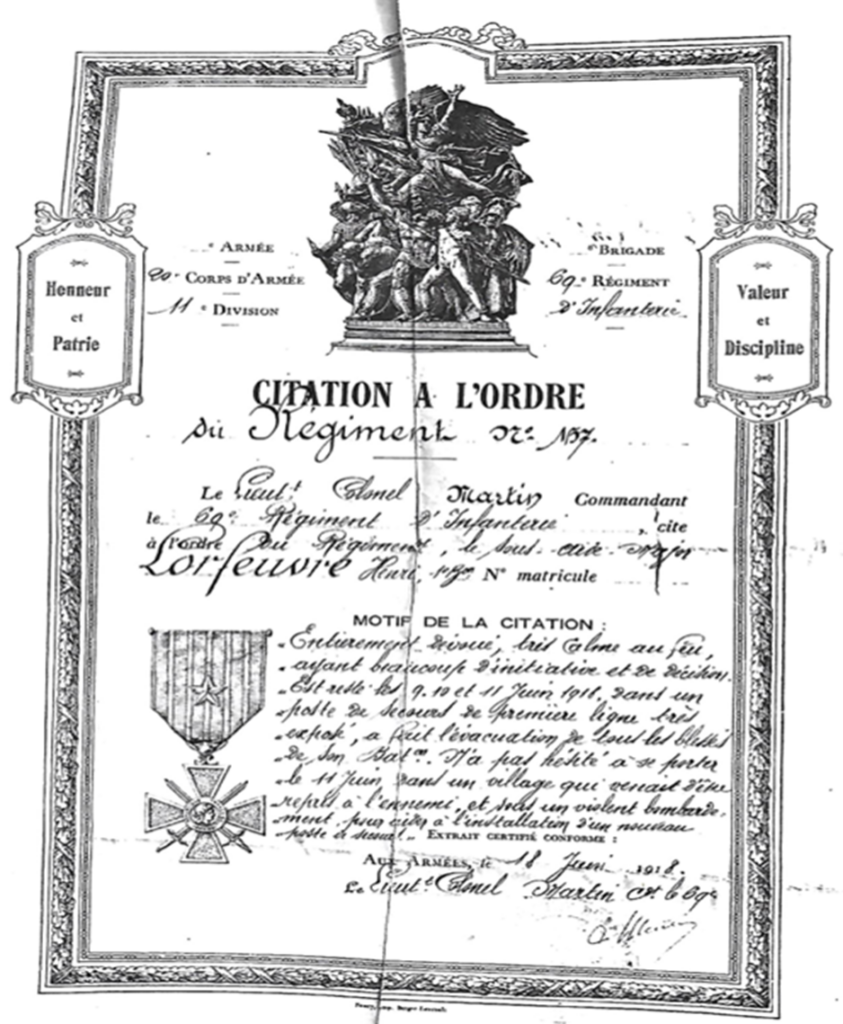 Honneur
et
Patrie
Valeur
et
Discipline
e Armée
20e Corps d'Armée
11e Division
e Brigade
69e Régiment
d'Infanterie
CITATION A L'ORDRE
du Régiment No 137.
Le Lieutt Colonel Martin Commandant
le 69e Régiment d'Infanterie, cite
à l'ordre du Régiment, le sous-aide-Major
Lorfeuvre Henri No matricule
MOTIF DE LA CITATION :
"Entièrement dévoué, très calme au feu,
"ayant beaucoup d'initiative et de décision.
"Est resté les 9, 10 et 11 Juin 1918, dans un
"poste de secours de première ligne très
"exposé, a fait l'évacuation de tous les blessés
"de son Baton. N'a pas hésité à se porter
"le 11 Juin dans un village qui venait d'être
"repris à l'ennemi, et sous un violent bombarde-
"ment, pour aider à l'installation d'un nouveau
"poste de secours". Extrait certifié conforme :
Aux Armées, le 18 Juin 1918.
Le Lieutt Colonel Martin Ct le 69e